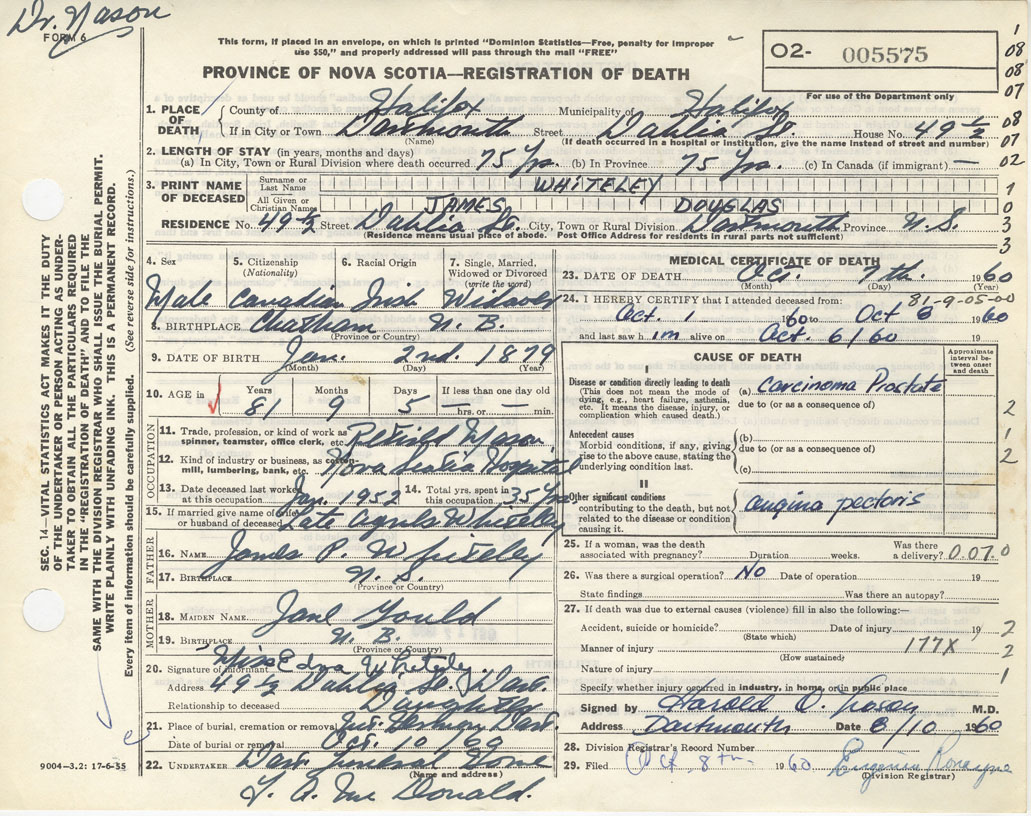 Dr. Nason
FORM 6
This form, if placed in an envelope, on which is printed "Dominion Statistics—Free, penalty for improper
use $50," and properly addressed will pass through the mail "FREE"
PROVINCE OF NOVA SCOTIA—REGISTRATION OF DEATH
O2- 005575
For use of the Department only
1
08
08
07
08
07
02
1
0
3
3
1. PLACE OF DEATH County of Halifax Municipality of Halifax
If in City or Town Dartmouth Street Dahlia St. House No. 49 1/2
(Name) (If death occurred in a hospital or institution, give the name instead of street and number)
2. LENGTH OF STAY (in years, months and days)
(a) In City, Town or Rural Division where death occurred 75 Yrs. (b) In Province 75 Yrs. (c) In Canada (if immigrant) —
3. PRINT NAME OF DECEASED Surname or Last Name WHITELEY
All Given or Christian Names JAMES DOUGLAS
RESIDENCE No. 49 1/2 Street Dahlia St. City, Town or Rural Division Dartmouth Province N.S.
(Residence means usual place of abode. Post Office Address for residents in rural parts not sufficient)
4. Sex 5. Citizenship (Nationality) 6. Racial Origin 7. Single, Married, Widowed or Divorced (write the word)
Male Canadian Irish Widower
8. BIRTHPLACE Chatham N. B.
(Province or Country)
9. DATE OF BIRTH Jan. 2nd. 1879
(Month) (Day) (Year)
10. AGE in Years Months Days If less than one day old
81 9 5 — hrs. or — min.
OCCUPATION
11. Trade, profession or kind of work as spinner, teamster, office clerk, etc. Retired Mason
12. Kind of industry or business, as cotton-mill, lumbering, bank, etc. Nova Scotia Hospital
13. Date deceased last worked at this occupation Jan. 1952 14. Total yrs. spent in this occupation 35 Yrs
15. If married give name of wife or husband of deceased Late Agnes Whiteley
FATHER
16. NAME James P. Whiteley
17. BIRTHPLACE N. S.
(Province or Country)
MOTHER
18. MAIDEN NAME Jane Gould
19. BIRTHPLACE N. B.
(Province or Country)
20. Signature of informant Miss Edna Whiteley.
Address 49 1/2 Dahlia St. Dart.
Relationship to deceased Daughter
21. Place of burial, cremation or removal Mt. Hermon Dart.
Date of burial or removal Oct. 10/60
22. UNDERTAKER Dart Funeral Home
(Name and address)
McDonald.
9004-3.2: 17-6-55
MEDICAL CERTIFICATE OF DEATH
23. DATE OF DEATH Oct. 7th. 1960
(Month) (Day)
81-9-05-00
24. I HEREBY CERTIFY that I attended deceased from:
Oct. 1 1960 to Oct 6 1960
and last saw him alive on Oct. 6/60 19
CAUSE OF DEATH
Approximate interval between onset and death
I
Disease or condition directly leading to death (a) Carcinoma Prostate
(This does not mean the mode of dying, e.g., heart failure, asthenia, etc. It means the disease, injury, or complication which caused death.)
due to (or as a consequence of)
2
Antecedent causes
Morbid conditions, if any, giving rise to the above cause, stating the underlying condition last.
(b)
due to (or as a consequence of)
(c)
1
2
II
Other significant conditions contributing to the death, but not related to the disease or condition causing it.
angina pectoris
25. If a woman, was the death associated with pregnancy? Duration weeks. Was there a delivery?
0.07.0
26. Was there a surgical operation? No Date of operation 19
State findings Was there an autopsy?
27. If death was due to external causes (violence) fill in also the following:—
Accident, suicide or homicide? Date of injury 19
(State which)
2
Manner of injury 177X
(How sustained)
2
Nature of injury
1
Specify whether injury occurred in industry, in home, or in public place
Signed by Harold D. Nason M.D.
Address Dartmouth Date 8/10 1960
28. Division Registrar's Record Number
29. Filed Oct. 8th 1960
(Division Registrar)
SEC. 14—VITAL STATISTICS ACT MAKES IT THE DUTY
OF THE UNDERTAKER OR PERSON ACTING AS UNDER-
TAKER TO OBTAIN ALL THE PARTICULARS REQUIRED
IN THE "REGISTRATION OF DEATH" AND FILE THE
SAME WITH THE DIVISION REGISTRAR WHO SHALL ISSUE THE BURIAL PERMIT.
WRITE PLAINLY WITH UNFADING INK. THIS IS A PERMANENT RECORD.
Every item of information should be carefully supplied. (See reverse side for instructions.)